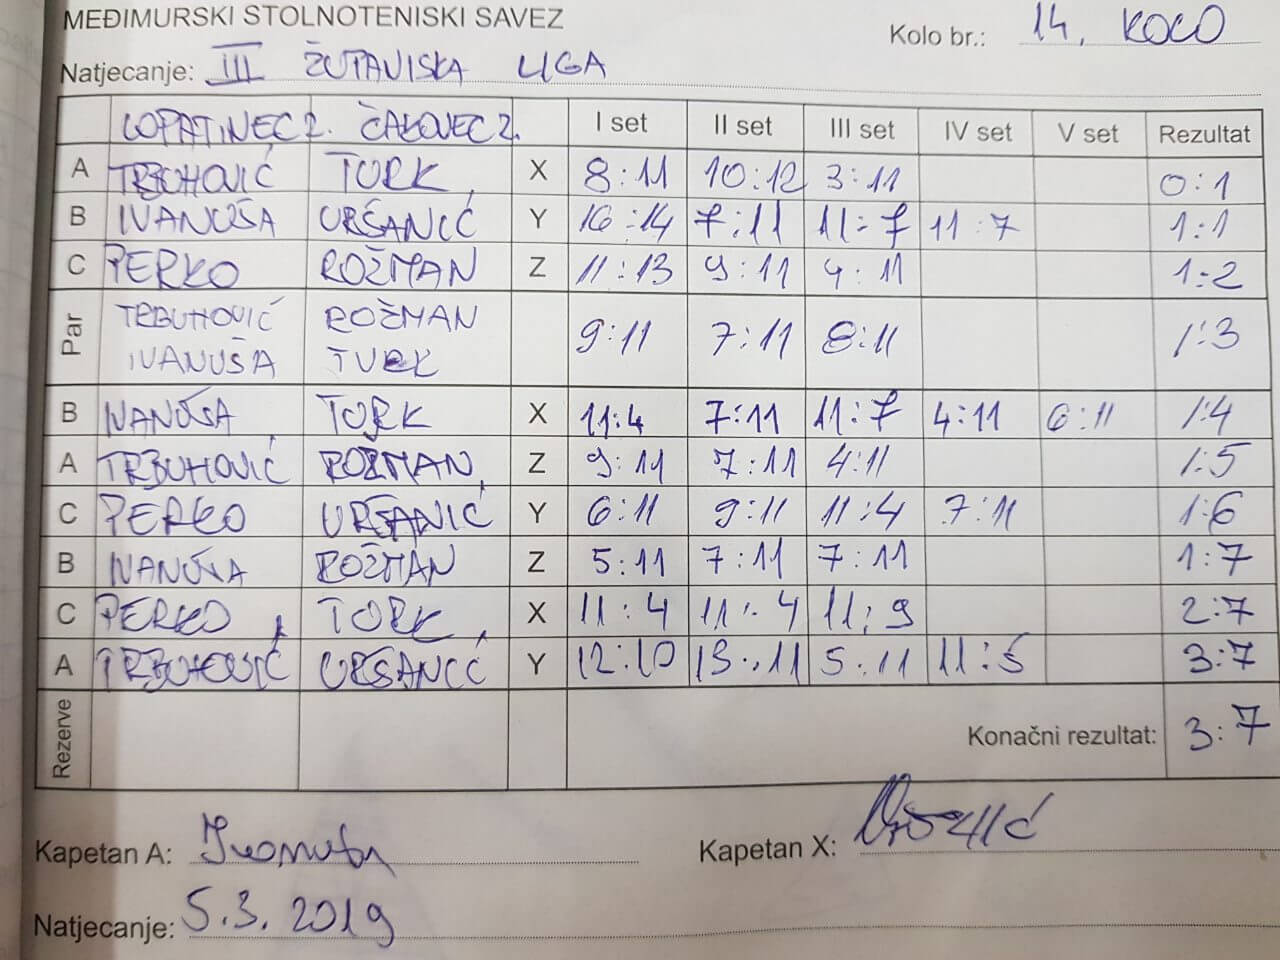 MEĐIMURSKI STOLNOTENISKI SAVEZ
Kolo br.: 14. KOLO
Natjecanje: III ŽUPANIJSKA LIGA
LOPATINEC 2. ČAKOVEC 2. I set II set III set IV set V set Rezultat
A TRBUHOVIĆ TURK X 8:11 10:12 3:11 0:1
B IVANUŠA URŠANIĆ Y 16:14 7:11 11:7 11:7 1:1
C PERKO ROŽMAN Z 11:13 9:11 4:11 1:2
Par TRBUHOVIĆ ROŽMAN 9:11 7:11 8:11 1:3
IVANUŠA TURK
B IVANUŠA TURK X 11:4 7:11 11:7 4:11 6:11 1:4
A TRBUHOVIĆ ROŽMAN Z 9:11 7:11 4:11 1:5
C PERKO URŠANIĆ Y 6:11 9:11 11:4 7:11 1:6
B IVANUŠA ROŽMAN Z 5:11 7:11 7:11 1:7
C PERKO TURK X 11:4 11:4 11:9 2:7
A TRBUHOVIĆ URŠANIĆ Y 12:10 13:11 5:11 11:5 3:7
Rezerve Konačni rezultat: 3:7
Kapetan A:
Kapetan X:
Natjecanje: 5.3.2019